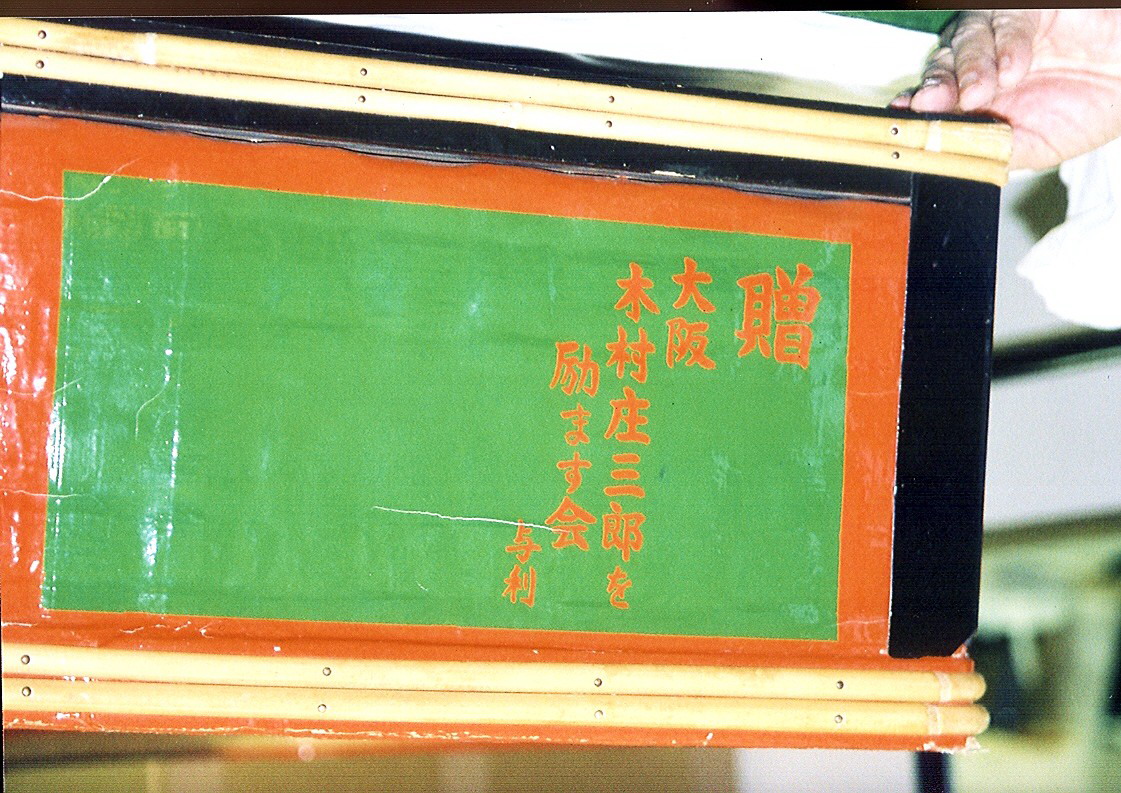 贈
大阪
木村庄三郎を
励ます会
与利